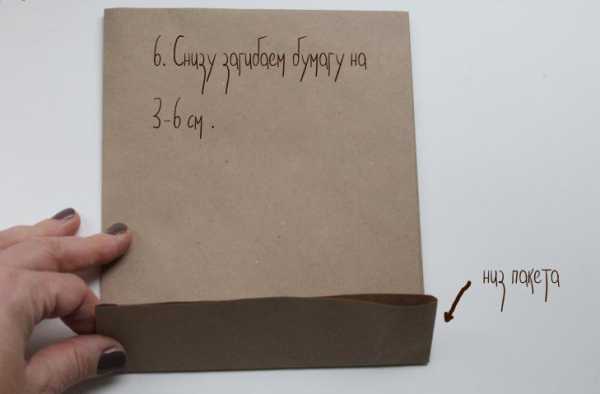 6. Снизу загибаем бумагу на
3-6 см.
низ пакета